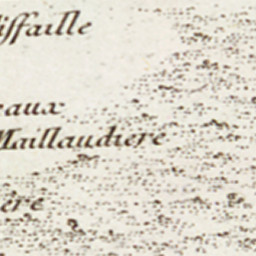 iffaille
eaux
Maillaudiere
ére